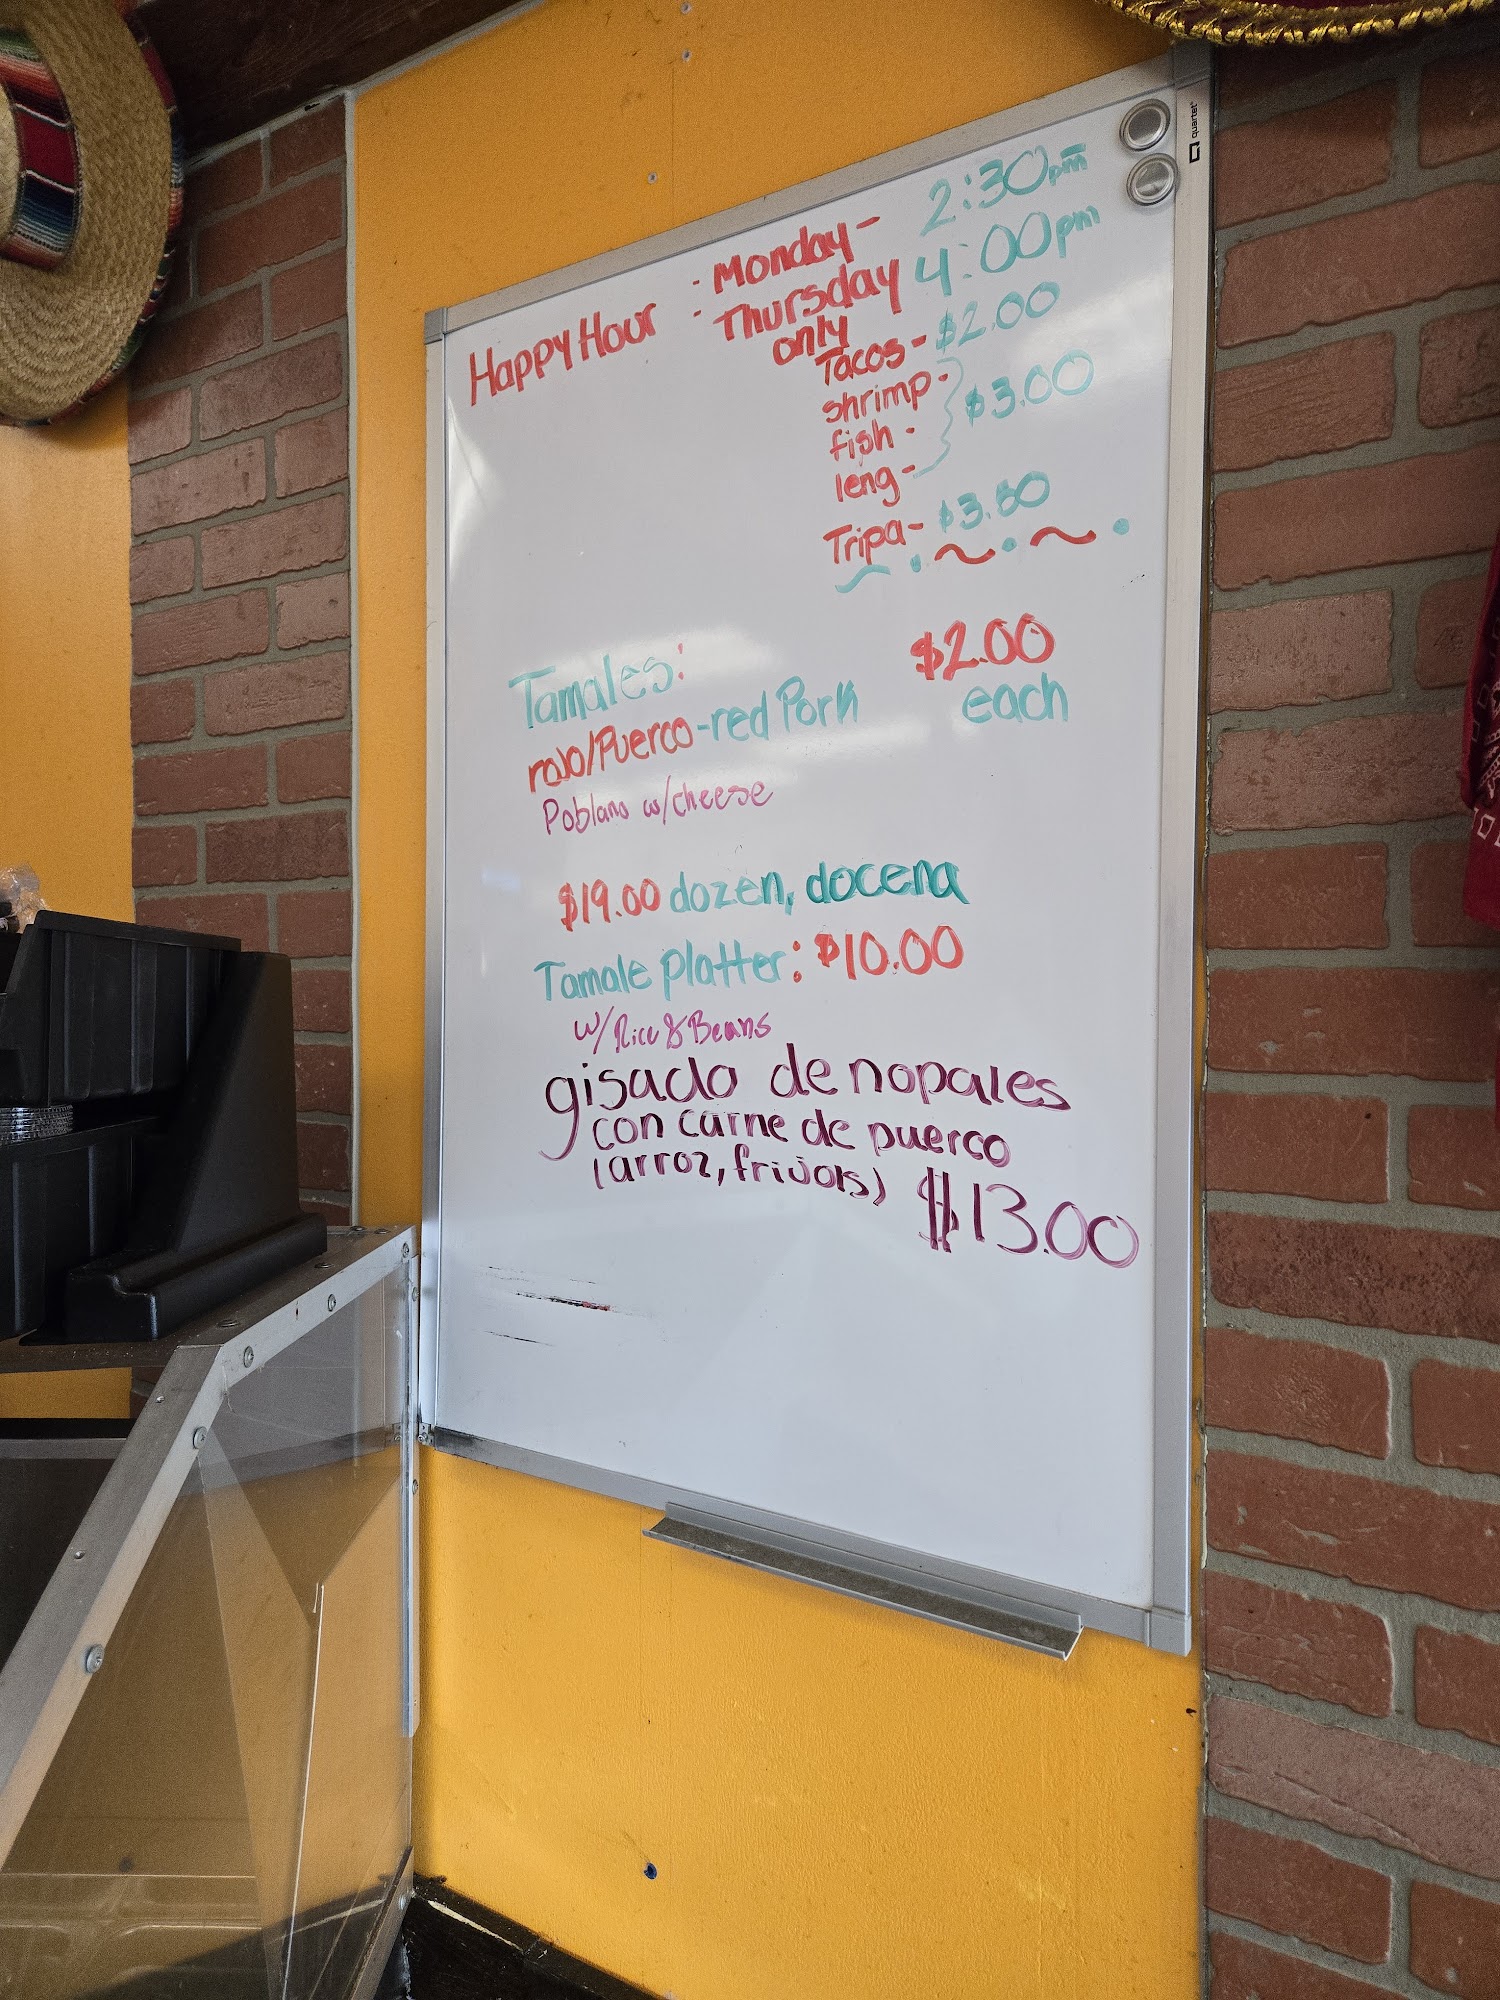 quartet
Happy Hour : Monday- 2:30pm
Thursday 4:00pm
only
Tacos - $2.00
shrimp-
fish - $3.00
leng-
Tripa- $3.50
Tamales: $2.00
rojo/Puerco-red Pork each
Poblano w/cheese
$19.00 dozen, docena
Tamale platter: $10.00
w/ Rice & Beans
gisado de nopales
con carne de puerco
(arroz, frijoles) $13.00